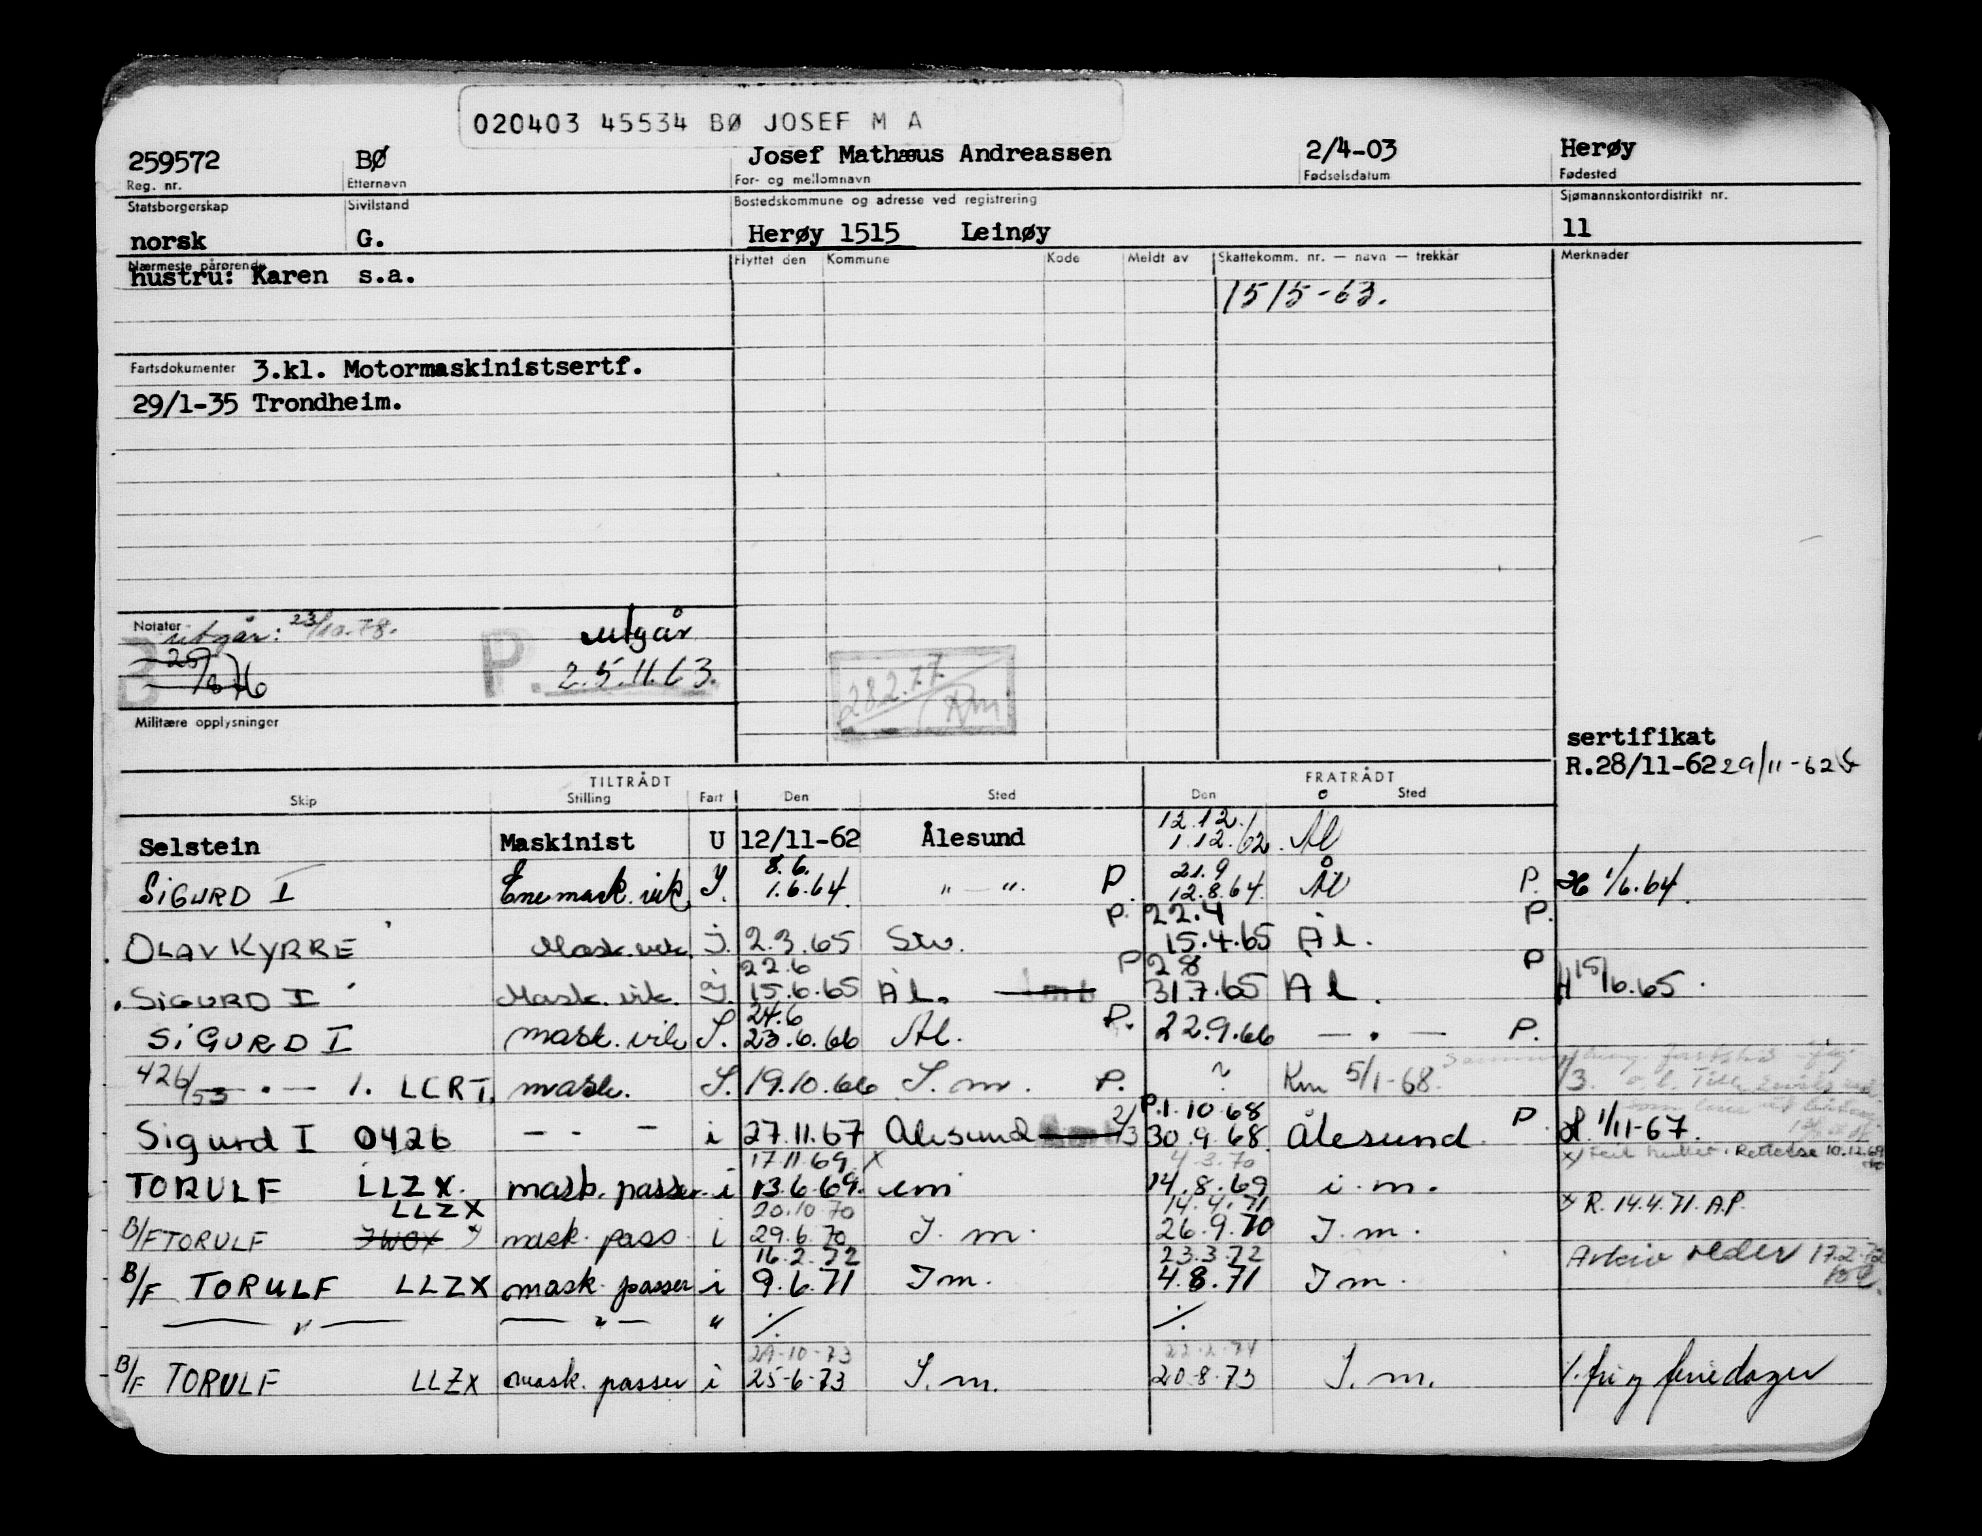 020403 45534 BØ JOSEF M A
259572 BØ Josef Mathæus Andreassen 2/4-03 Herøy
Reg. nr. Etternavn For- og mellomnavn Fødselsdatum Fødested
Statsborgerskap Sivilstand Bostedskommune og adresse ved registrering Sjømannskontordistrikt nr.
norsk G. Herøy 1515 Leinøy 11
Nærmeste pårørende Flyttet den Kommune Kode Meldt av Skattekomm. nr. — navn — trekkår Merknader
hustru: Karen s.a.
1515-63.
Fartsdokumenter 3.kl. Motormaskinistsertf.
29/1-35 Trondheim.
Notater utgår: 23/10.78.
B 25/8 76
P. utgår
25.11.63.
28.2.77
Militære opplysninger
sertifikat
R.28/11-62 29/11-62
TILTRÅDT FRATRÅDT
Skip Stilling Fart Den Sted Den Sted
12.12.
Selstein Maskinist U 12/11-62 Ålesund 1.12.62. Ål
8.6. 21.9
SIGURD I Enemask.vik. I. 1.6.64. " — ". P. 12.8.64. Ål P. H 1/6.64.
P. 22.4 P.
OLAV KYRRE Mask.vik. i. 2.3.65 Stv. 15.4.65 Ål.
22.6 P 28 P
SIGURD I Mask. vik. i. 15.6.65 ÅL. 31.7.65 Ål. H 15/6.65.
24.6
SIGURD I mask. vik I. 23.6.66 Ål. P. 22.9.66 — . — P.
426/53 — . — 1. LCRT. mask. I. 19.10.66 I. m. P. ? Km 5/1-68.
P.1.10.68
Sigurd I 0426 — - — i 27.11.67 Ålesund 2/3 30.9.68 Ålesund. P H. 1/11-67.
17.11.69 x 4.3.70 x) Rettelse 10.12.69
TORULF LLZX. mask. passer i 13.6.69. im 14.8.69 i.m.
LLZX 20.10 70 14.4.71 x R. 14.4.71. A.P.
B/F TORULF mask. pass. i 29.6.70 I.m. 26.9.70 I.m.
16.2.72 23.3.72 Arkiv 17.2.72
B/F TORULF LLZX mask. passer i 9.6.71 I m. 4.8.71 I m.
— " — — " — " ./. ./.
29-10-73 22.2.74
B/F TORULF LLZX mask. passer i 25-6-73 I.m. 20-8-73 I.m. /. fri og feriedager